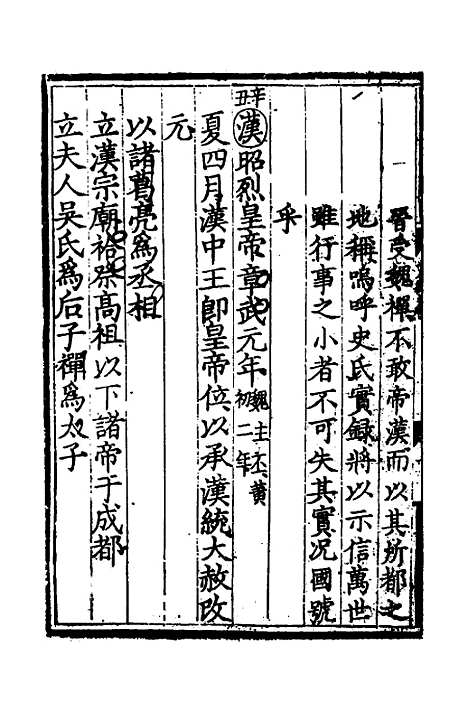 晉受魏禪不敢帝漢而以其所都之
地稱嗚呼史氏實録將以示信萬世
雖行事之小者不可失其實况國號
乎
辛丑漢昭烈皇帝章武元年魏主丕黄初二年
夏四月漢中王即皇帝位以承漢統大赦改
元
以諸葛亮爲丞相
立漢宗廟祫祭髙祖以下諸帝于成都
立夫人吳氏爲后子禪爲太子